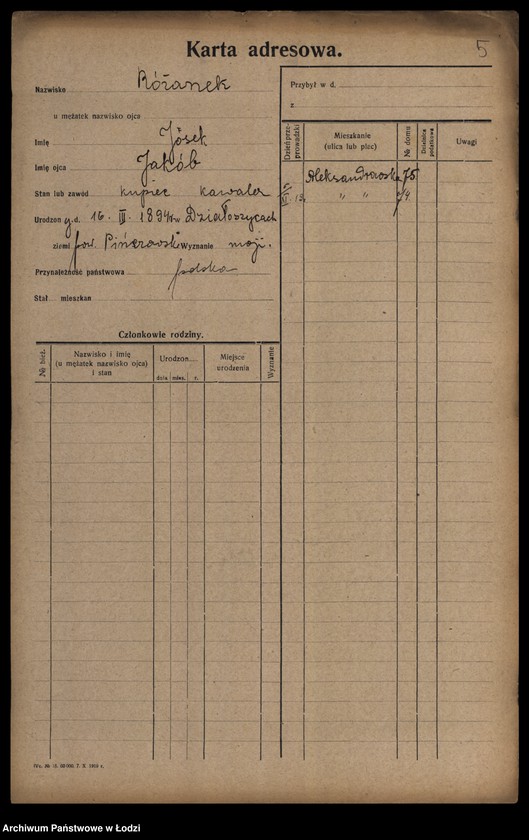 5
Karta adresowa.
Nazwisko Różanek
u mężatek nazwisko ojca
Imię Jósek
Imię ojca Jakób
Stan lub zawód kupiec kawaler
Urodzon g.d. 16. III. 1894 r. w Działoszycach
ziemi pow. Pińczowski Wyznanie mojż.
Przynależność państwowa polska
Stał mieszkan
Przybył w d.
z
Dzień przeprowadzki
Mieszkanie (ulica lub plac)
№ domu
Dzielnica podatkowa
Uwagi
Aleksandrowska 75
" "
Członkowie rodziny.
№ bież.
Nazwisko i imię
(u mężatek nazwisko ojca)
i stan
Urodzon
dnia mies. r.
Miejsce
urodzenia
Wyznanie
Archiwum Państwowe w Łodzi